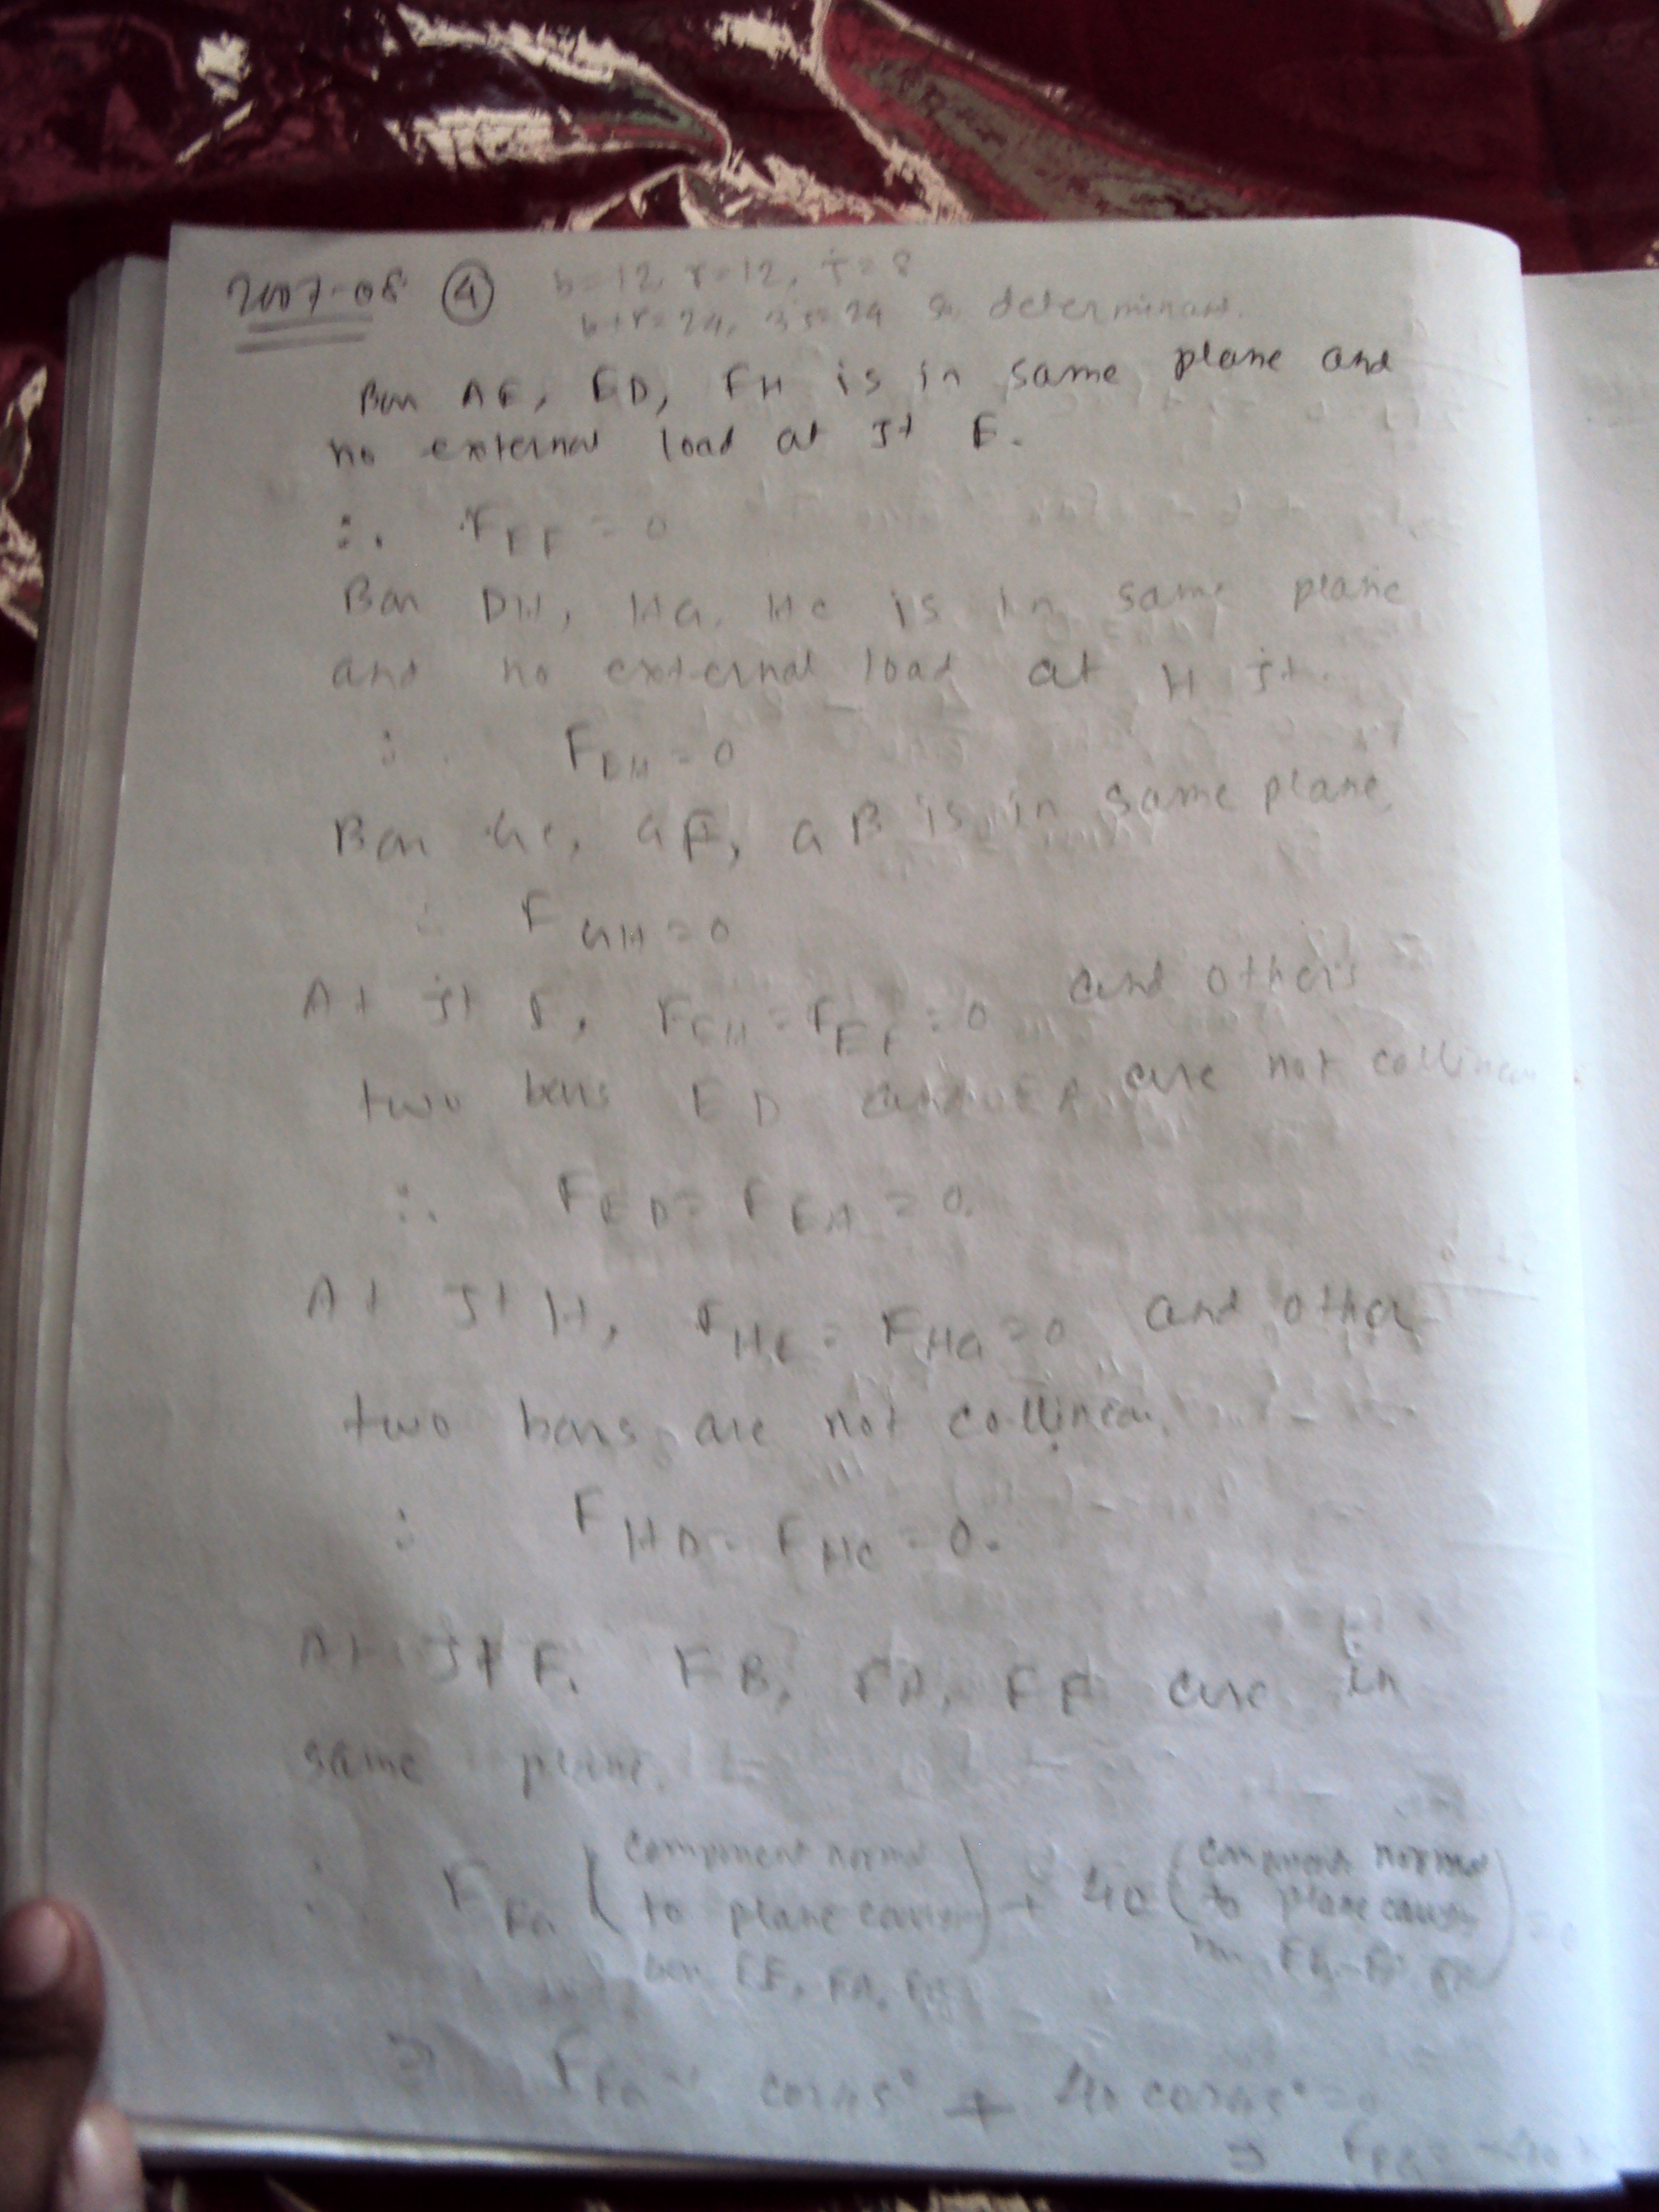 2007-08 ④ b=12, r=12, j=8
b+r=24, 3j=24 So determinant.
Bar AE, ED, EH is in same plane and
no external load at Jt E.
∴ F_EF = 0
Bar DH, HG, HC is in same plane
and no external load at H jt.
∴ F_EH = 0
Bar GC, GF, GB is in same plane
∴ F_GH = 0
At jt E, F_EH = F_EF = 0 and others
two bars ED and EA are not collinear.
∴ F_ED = F_EA = 0.
At Jt H, F_HE = F_HG = 0 and other
two bars are not collinear.
∴ F_HD = F_HC = 0.
At Jt F, FB, FA, FE are in
same plane.
∴ F_FG (component normal to plane bar EF, FA, ) + 40 (component normal to plane ) = 0
⇒ F_FG cos45° + 40 cos45° = 0
⇒ F_FG = -40